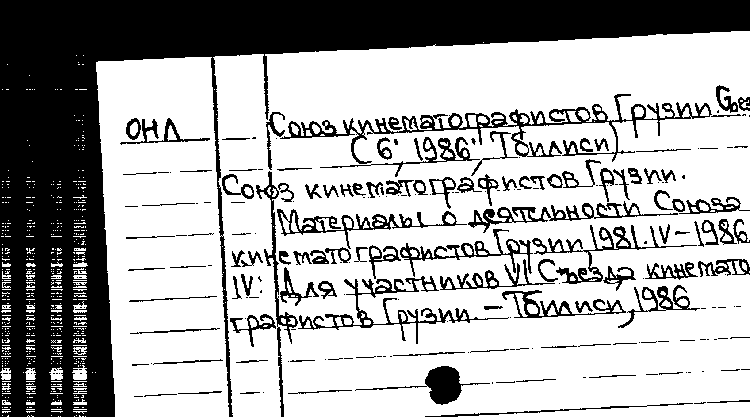 ОНЛ
Союз кинематографистов Грузии. Съез
(6; 1986; Тбилиси)
Союз кинематографистов Грузии.
Материалы о деятельности Союза
кинематографистов Грузии, 1981.IV-1986
IV: Для участников VI Съезда кинемато
графистов Грузии. - Тбилиси, 1986